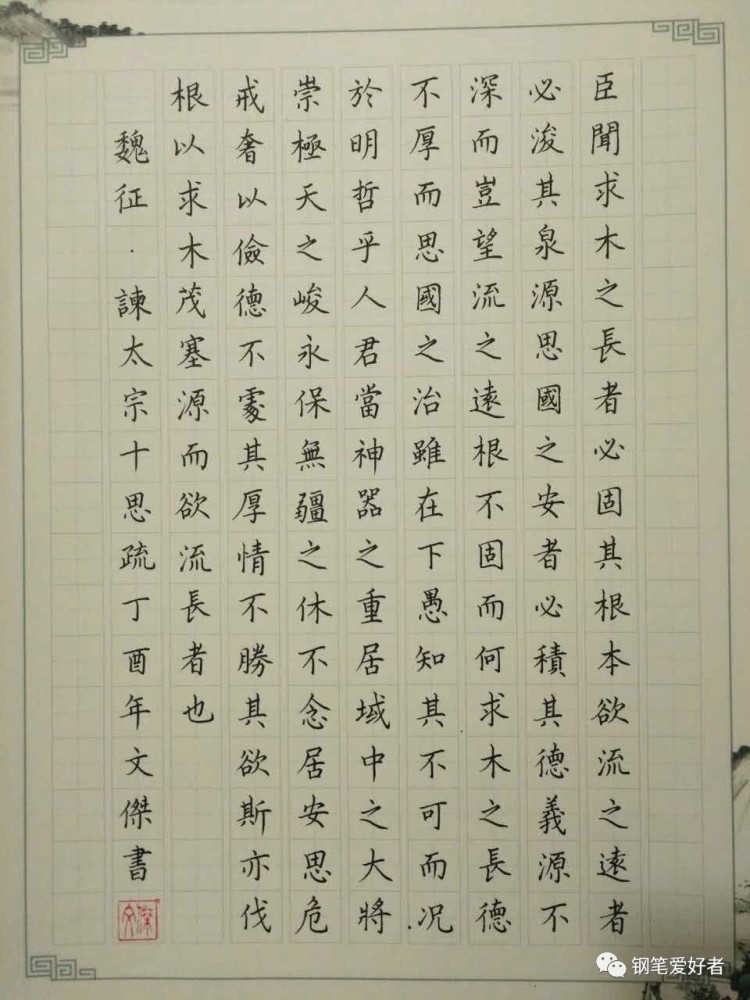 臣聞求木之長者必固其根本欲流之遠者
必浚其泉源思國之安者必積其德義源不
深而豈望流之遠根不固而何求木之長德
不厚而思國之治雖在下愚知其不可而況
於明哲乎人君當神器之重居域中之大將
崇極天之峻永保無疆之休不念居安思危
戒奢以儉德不處其厚情不勝其欲斯亦伐
根以求木茂塞源而欲流長者也
魏征·諫太宗十思疏丁酉年文傑書
钢笔爱好者